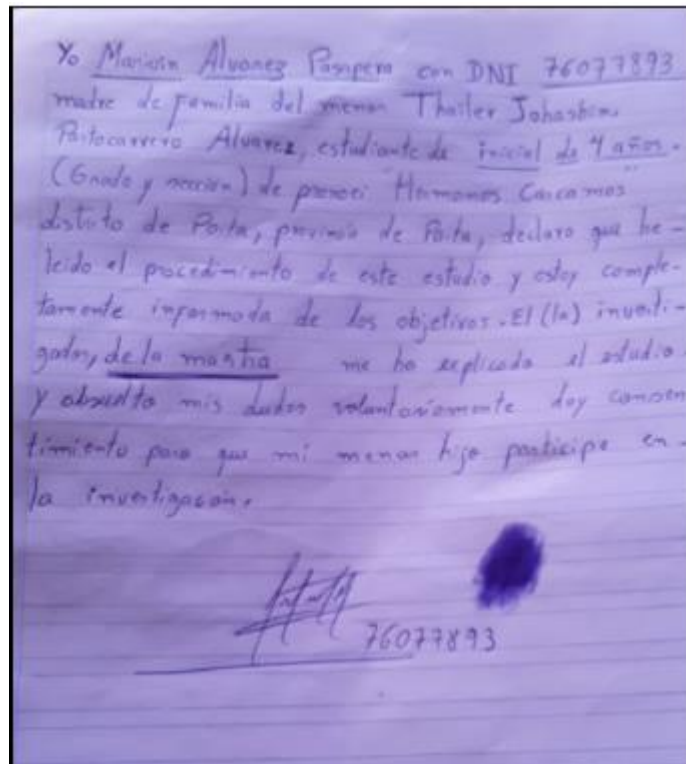 Yo Maricin Alvarez Pasapera con DNI 76077893
madre de familia del menor Thailer Johashin
Portocarrero Alvarez, estudiante de inicial de 4 años.
(Grado y sección) de pronoei Hermanos Carcamos
distrito de Paita, provincia de Paita, declaro que he-
leido el procedimiento de este estudio y estoy comple-
tamente informada de los objetivos. El (la) investi-
gador, de la mastra me ha explicado el estudio
y absuelto mis dudas voluntariamente doy consen
timiento para que mi menor hijo participe en-
la investigacón.
76077893